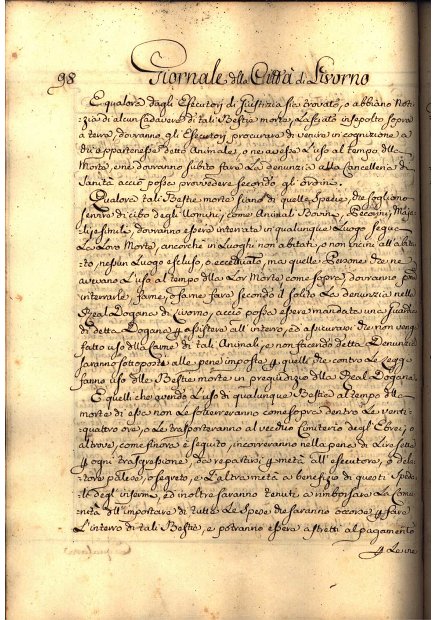 98 Giornale della Città di Livorno
E qualora dagli Esecutorj di Giustizia sia trovato, o abbiano Noti-
zia di alcun Cadavere di tali Bestie morte, Lasciato insepolto sopra
a terra, dovranno gli Esecutorj procurare di venire in cognizione a
chi appartenesse detto Animale, o ne avesse L'uso al tempo dlla
Morte, e ne dovranno subito fare La denunzia alla Cancelleria di
Sanità acciò possa provvedere secondo gli ordini.
Qualora tali Bestie morte siano di quelle Spezie, che sogliono
servire di cibo degli Uomini, come Animali Bovini, Pecorini,
e simili, dovranno essere interrate in qualunque Luogo segue
La Loro Morte, ancorchè in Luoghi non abitati, o non vicini all'abita-
to, nessun Luogo escluso, o eccettuato, ma quelle Persone che ne
avevano L'uso al tempo dlla Lor Morte come sopra, dovranno
interrarle, farne, o farne fare secondo il solito La denunzia nella
Real Dogana di Livorno, acciò possa essere mandata una Guardia
di detta Dogana p assistere all'interro, ed assicurarsi che non venga
fatto uso dlla Carne di tali Animali, e non facendo detta Denunzia
saranno sottoposte alle pene imposte p quelli che contro Le Leggi
fanno uso dlle Bestie morte in pregiudizio dlla Real Dogana.
E quelli che avendo L'uso di qualunque Bestia al tempo dlla
morte di essa non Le sotterreranno come sopra dentro Le venti-
quattro ore, o Le trasporteranno al vecchio Cimiterio degl'Ebrei, o
altrove, come finora è seguito, incorreranno nella pena di Lire sette
p ogni trasgressione, da repartirsi p metà all'esecutore, o dela-
tore palese, o segreto, e L'altra metà a benefizio di questi Speda-
li degl'infermi, ed inoltre saranno tenuti a rimborsare La Comu-
nità dll'importare di tutte Le Spese che saranno occorse p fare
L'interro di tali Bestie, e potranno essere astretti al pagamento
p Le vie